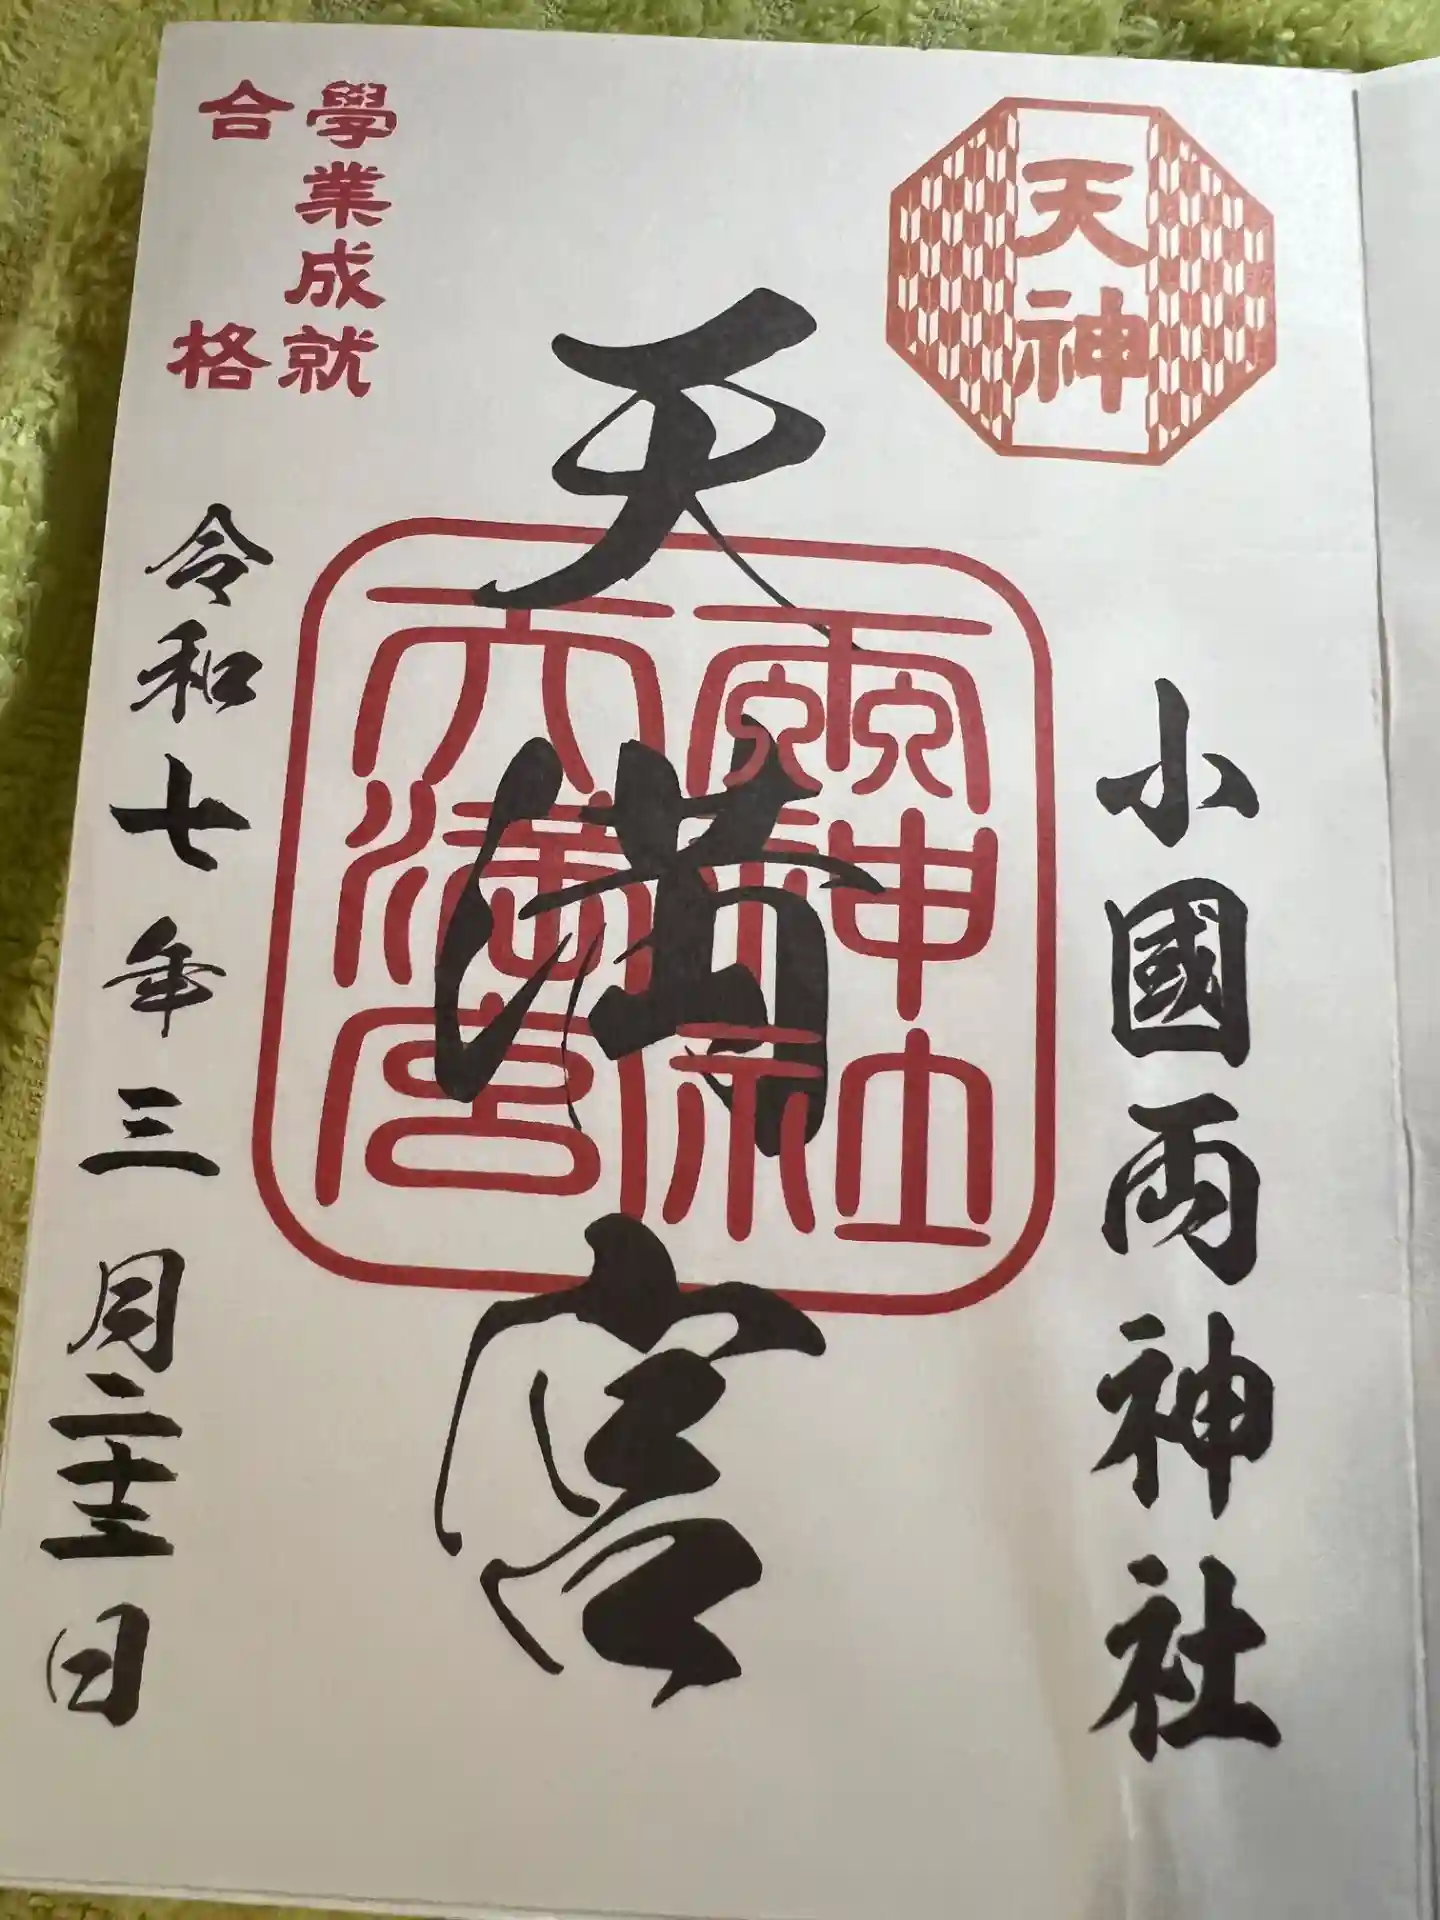 天神
小國両神社
天満宮
神社
天満宮
學業成就
合格
令和七年三月二十三日